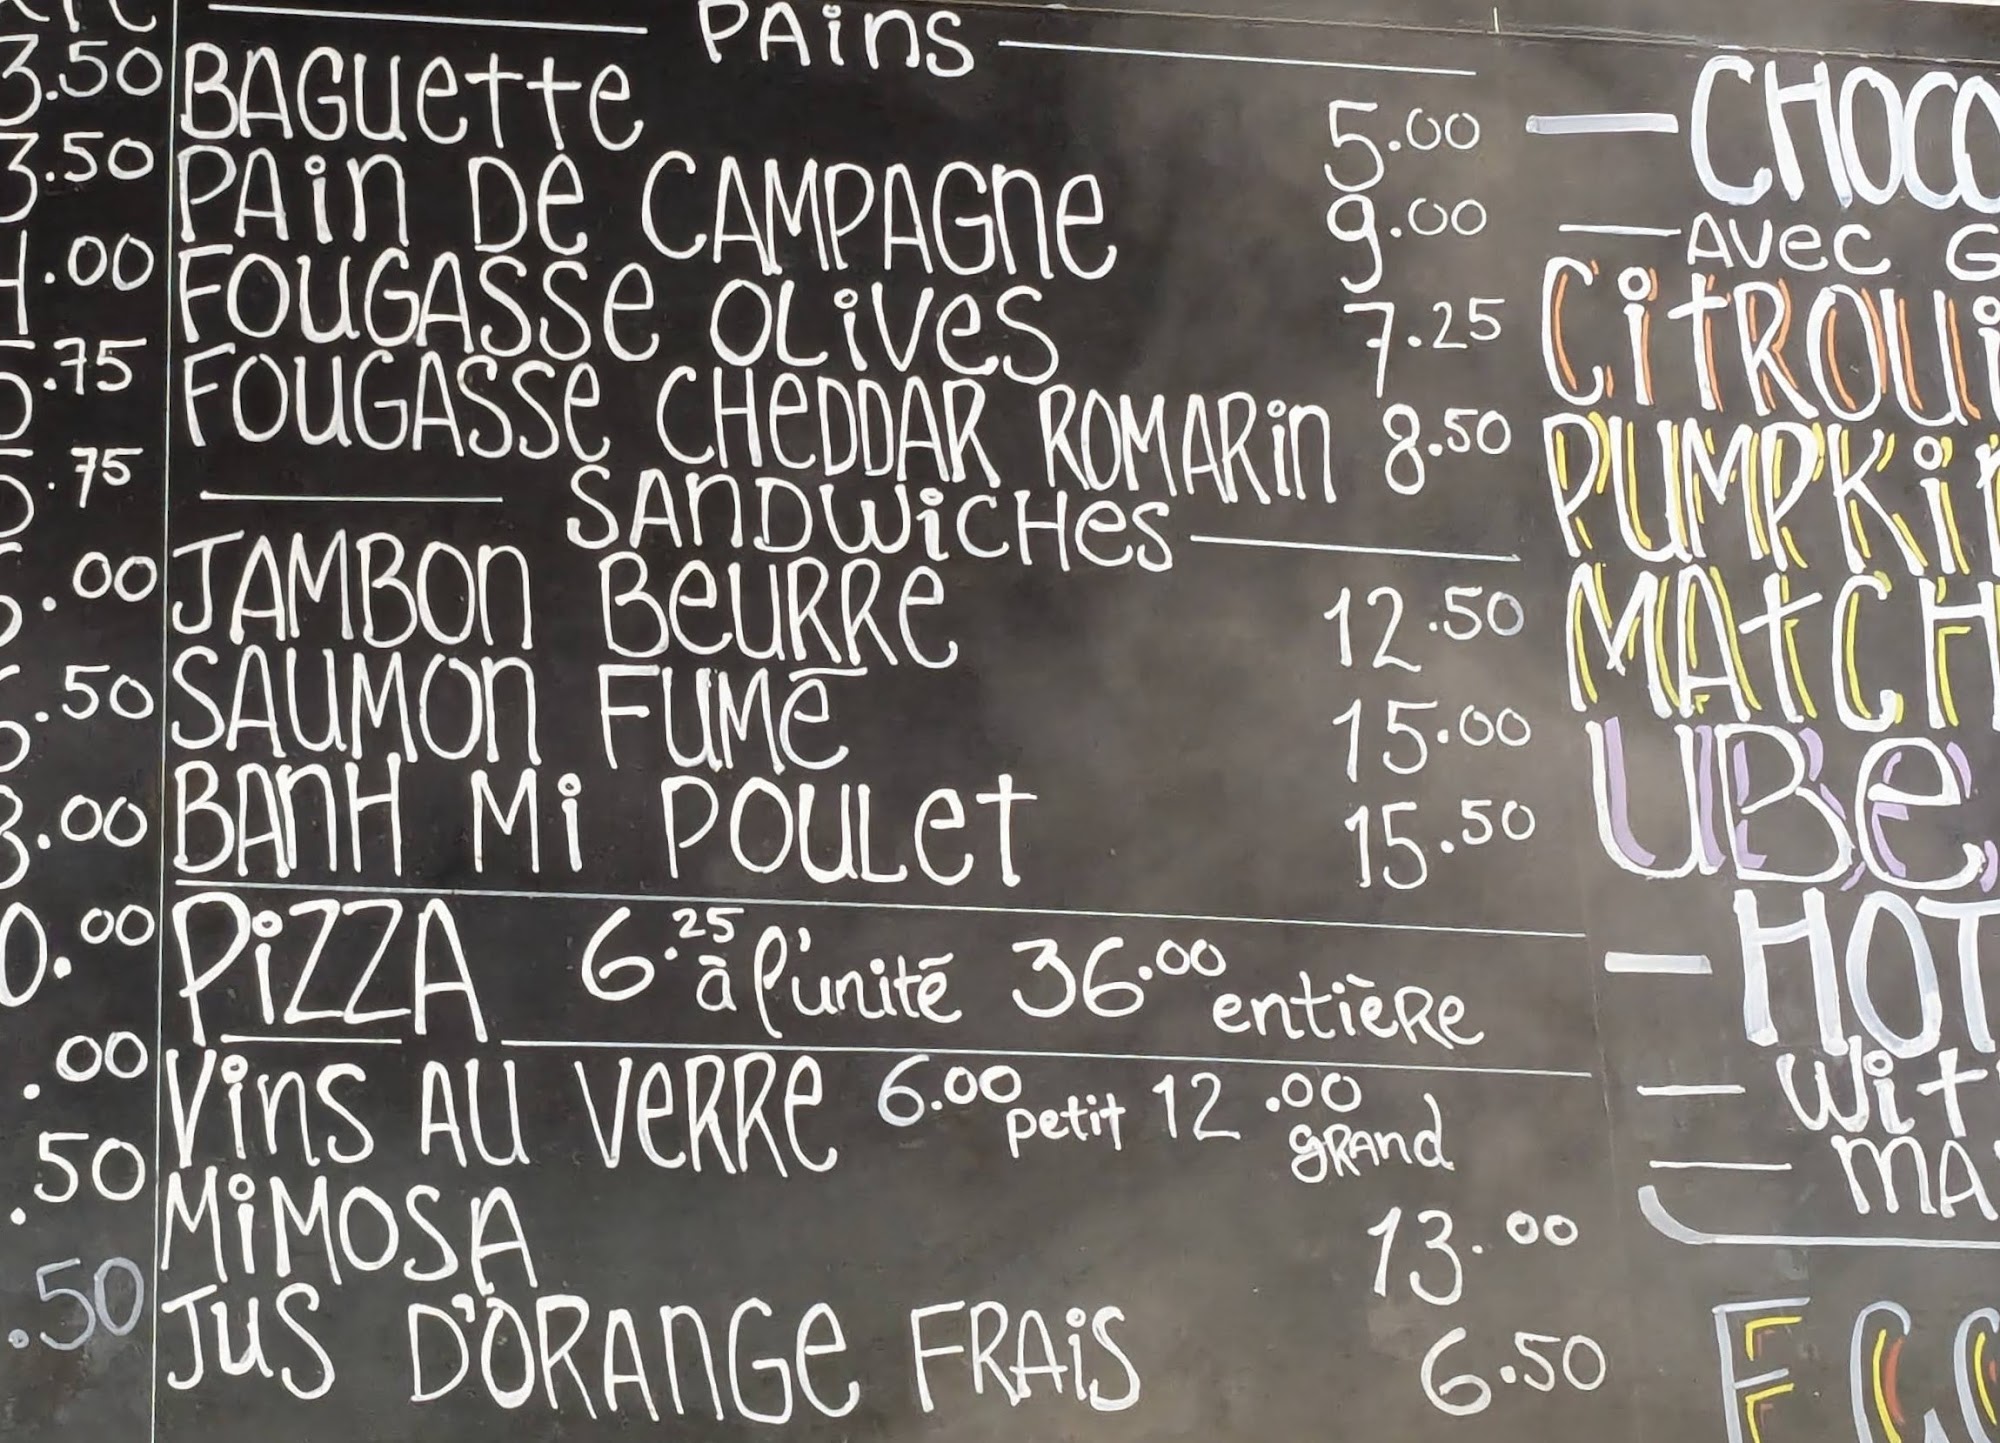 3.50
3.50
.00
.75
.75
.00
.50
.00
0.00
.00
.50
.50
PAiNS
BAGUette 5.00
PAiN De CAMPAGNe 9.00
FOUGASSe OLiVeS 7.25
FOUGASSe CHeDDAR ROMARiN 8.50
SANDWiCHeS
JAMBON BeURRe 12.50
SAUMON FUMé 15.00
BANH Mi POULet 15.50
PiZZA 6.25 à l'unité 36.00 entièRe
ViNS AU VeRRe 6.00 petit 12.00 GRAnd
MiMOSA 13.00
JUS D'ORANGe FRAiS 6.50
AVeC G
UBe
HOT